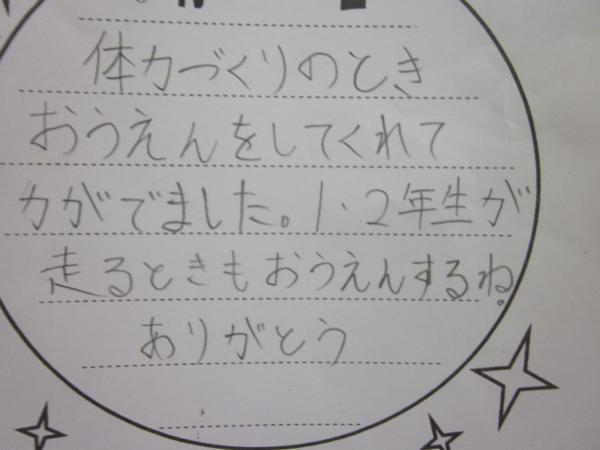 体力づくりのとき
おうえんをしてくれて
力がでました。1・2年生が
走るときもおうえんするね。
ありがとう